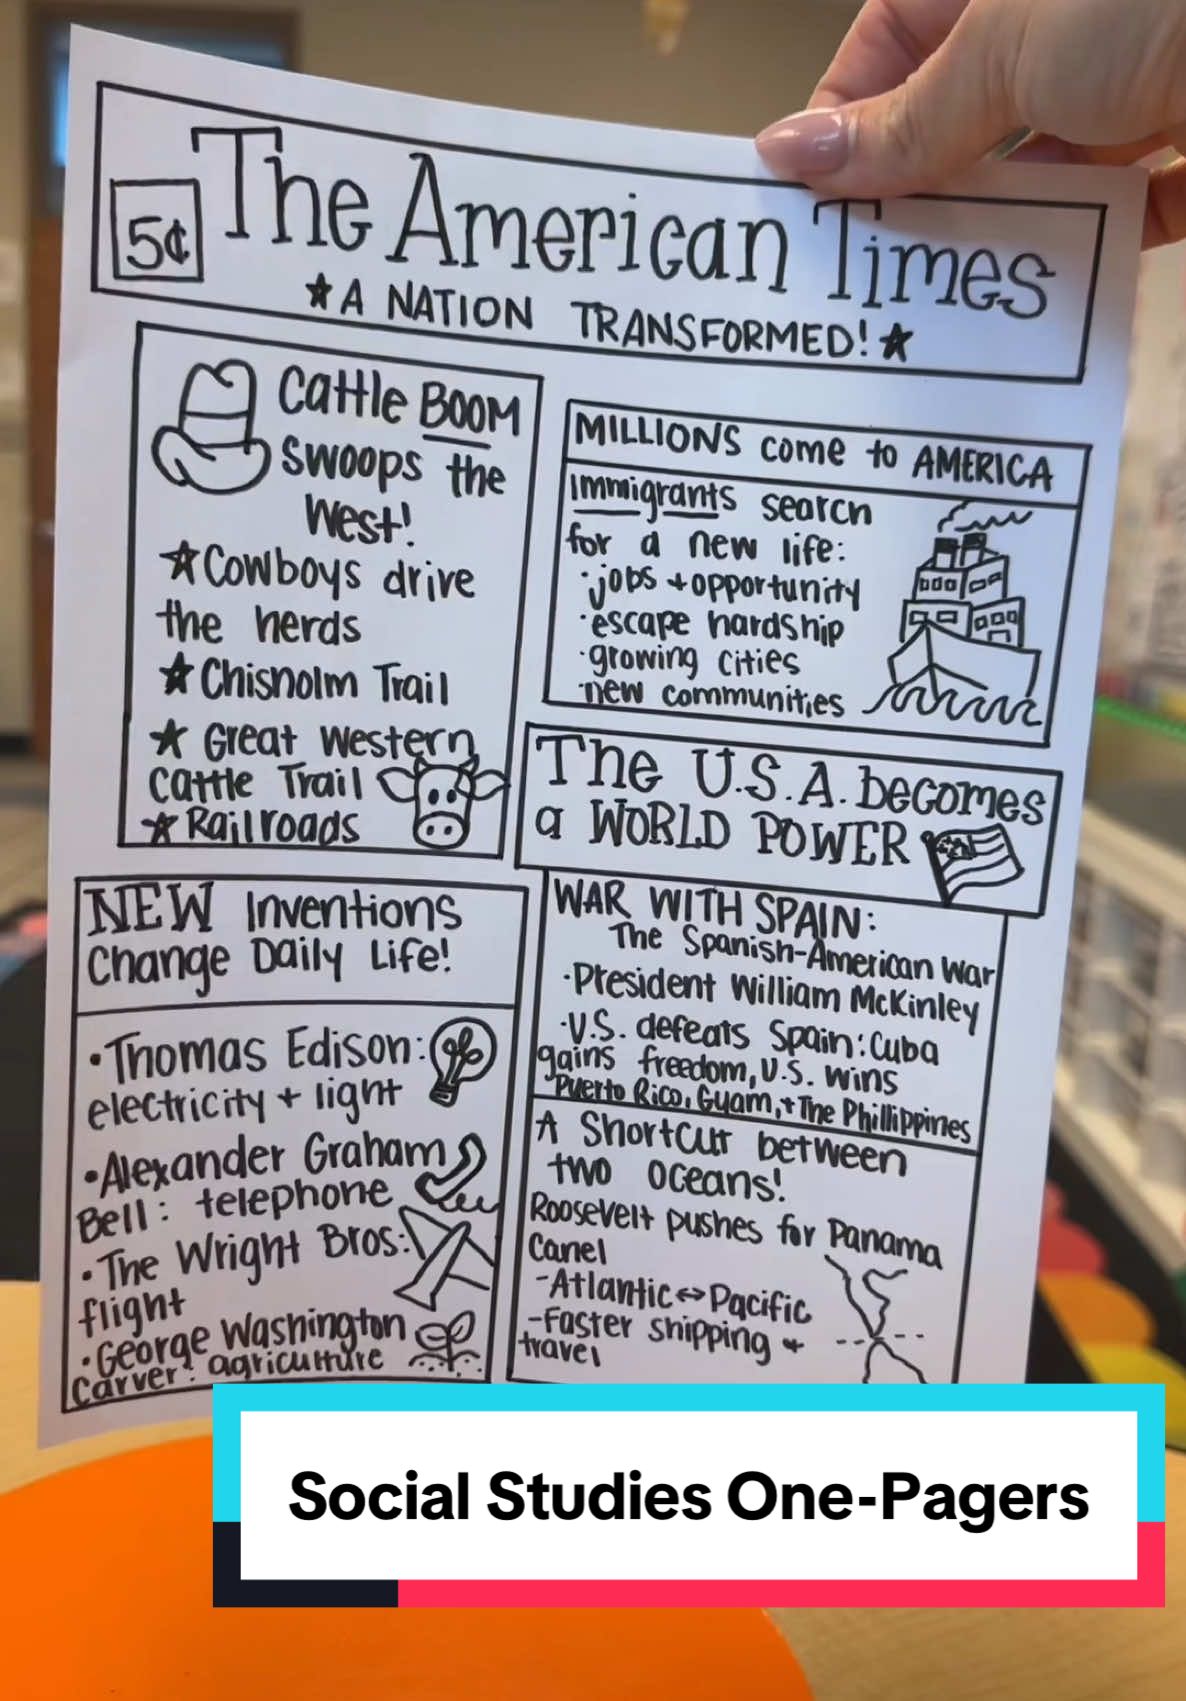 5¢
The American Times
★A NATION TRANSFORMED!★
Cattle BOOM
swoops the
West!
★Cowboys drive
the herds
★Chisholm Trail
★Great Western
Cattle Trail
★Railroads
MILLIONS come to AMERICA
Immigrants search
for a new life:
·jobs + opportunity
·escape hardship
·growing cities
·new communities
The U.S.A. becomes
a WORLD POWER
NEW Inventions
Change Daily Life!
·Thomas Edison:
electricity + light
·Alexander Graham
Bell: telephone
·The Wright Bros:
flight
·George Washington
Carver: agriculture
WAR WITH SPAIN:
The Spanish-American War
·President William McKinley
·U.S. defeats Spain: Cuba
gains freedom, U.S. wins
Puerto Rico, Guam, + The Phillippines
A Shortcut between
two oceans!
Roosevelt pushes for Panama
Canel
-Atlantic↔Pacific
-Faster shipping +
travel
Social Studies One-Pagers